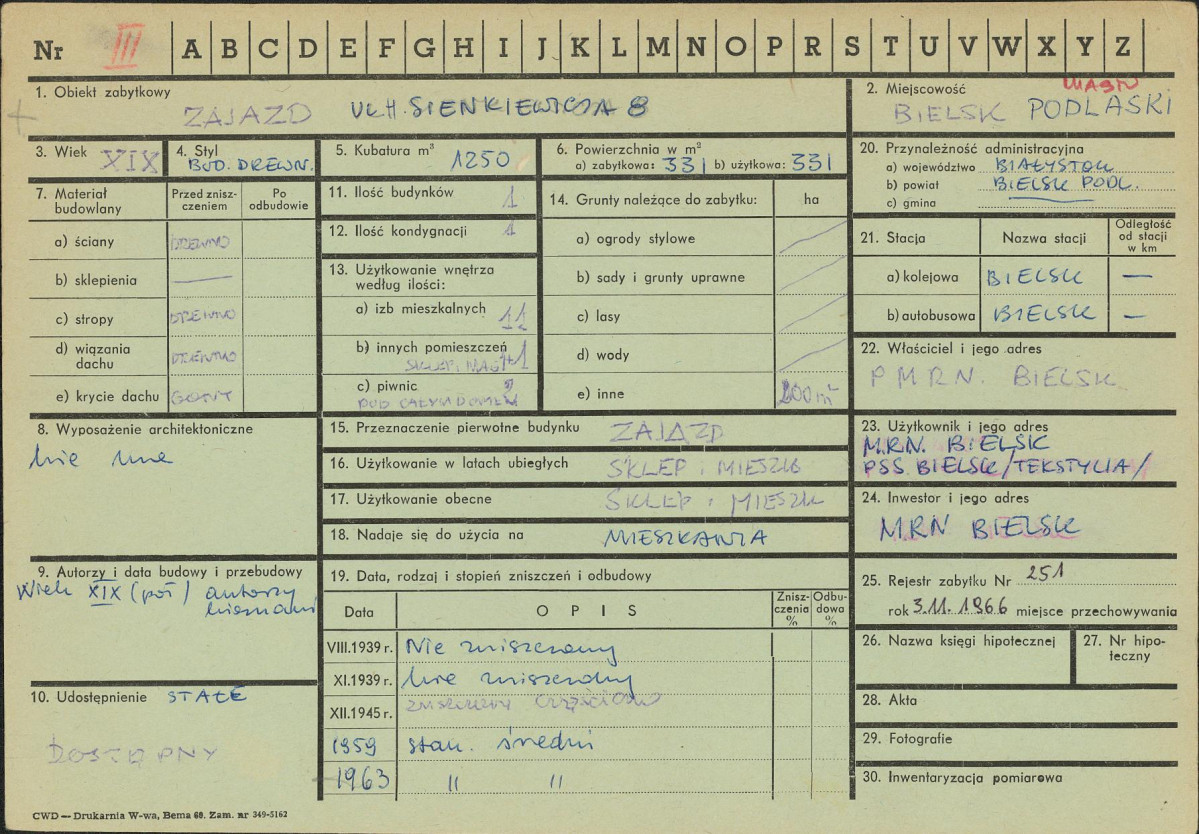 Nr III A B C D E F G H I J K L M N O P R S T U V W X Y Z
1. Obiekt zabytkowy
ZAJAZD UL. H. SIENKIEWICZA 8
2. Miejscowość MIASTO
BIELSK PODLASKI
3. Wiek XIX
4. Styl
BUD. DREWN.
5. Kubatura m³
1250
6. Powierzchnia w m²
a) zabytkowa: 331 b) użytkowa: 331
7. Materiał budowlany
Przed zniszczeniem
Po odbudowie
a) ściany DREWNO
b) sklepienia —
c) stropy DREWNO
d) wiązania dachu DREWNO
e) krycie dachu GONT
8. Wyposażenie architektoniczne
nie ma
9. Autorzy i data budowy i przebudowy
Wiek XIX (poł) autorzy
nieznani
10. Udostępnienie STAŁE
DOSTĘPNY
11. Ilość budynków 1
12. Ilość kondygnacji 1
13. Użytkowanie wnętrza
według ilości:
a) izb mieszkalnych 11
b) innych pomieszczeń
SKLEP. MAG +1
c) piwnic
POD CAŁYM DOMEM
14. Grunty należące do zabytku: ha
a) ogrody stylowe
b) sady i grunty uprawne
c) lasy
d) wody
e) inne 200 m²
15. Przeznaczenie pierwotne budynku ZAJAZD
16. Użytkowanie w latach ubiegłych SKLEP i MIESZK
17. Użytkowanie obecne SKLEP i MIESZK
18. Nadaje się do użycia na MIESZKANIA
19. Data, rodzaj i stopień zniszczeń i odbudowy
Data
OPIS
Zniszczenia %
Odbudowa %
VIII.1939 r. Nie zniszczony
XI.1939 r. nie zniszczony
XII.1945 r. zniszczony częściowo
1959 stan. średni
1963 " "
20. Przynależność administracyjna
a) województwo BIAŁYSTOK
b) powiat BIELSK PODL.
c) gmina
21. Stacja
Nazwa stacji
Odległość od stacji w km
a) kolejowa BIELSK —
b) autobusowa BIELSK —
22. Właściciel i jego adres
P.M.R.N. BIELSK
23. Użytkownik i jego adres
M.R.N. BIELSK
PSS. BIELSK /TEKSTYLIA/
24. Inwestor i jego adres
M.R.N BIELSK
25. Rejestr zabytku Nr 251
rok 3.11.1966 miejsce przechowywania
26. Nazwa księgi hipotecznej
27. Nr hipoteczny
28. Akta
29. Fotografie
30. Inwentaryzacja pomiarowa
CWD — Drukarnia W-wa, Bema 60. Zam. nr 349-5162